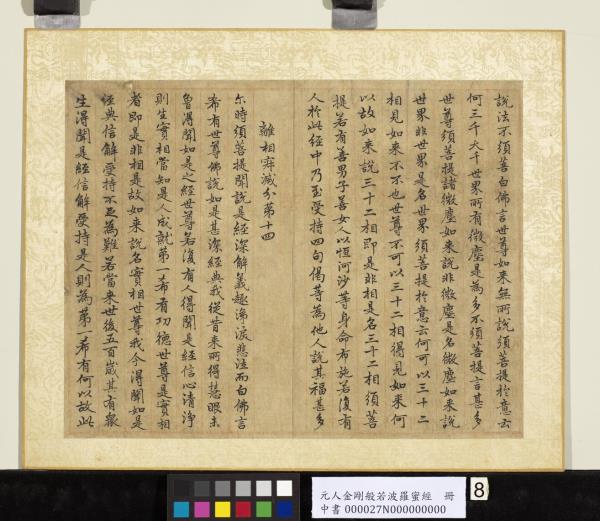 說法不須菩白佛言世尊如来無所說須菩提於意云
何三千大千世界所有微塵是為多不須菩提言甚多
世尊須菩提諸微塵如来說非微塵是名微塵如来說
世界非世界是名世界須菩提於意云何可以三十二
相見如来不不也世尊不可以三十二相得見如来何
以故如来說三十二相即是非相是名三十二相須菩
提若有善男子善女人以恒河沙等身命布施若復有
人於此经中乃至受持四句偈等為他人說其福甚多
離相寂滅分第十四
尒時須菩提聞說是经深解義趣涕淚悲泣而白佛言
希有世尊佛說如是甚深经典我從昔来所得慧眼未
曾得聞如是之经世尊若復有人得聞是经信心清淨
則生實相當知是人成就第一希有功德世尊是實相
者即是非相是故如来說名實相世尊我今得聞如是
经典信解受持不足為難若當来世後五百歲其有衆
生得聞是经信解受持是人則為第一希有何以故此
元人金剛般若波羅蜜經 冊
中書 000027N000000000
8